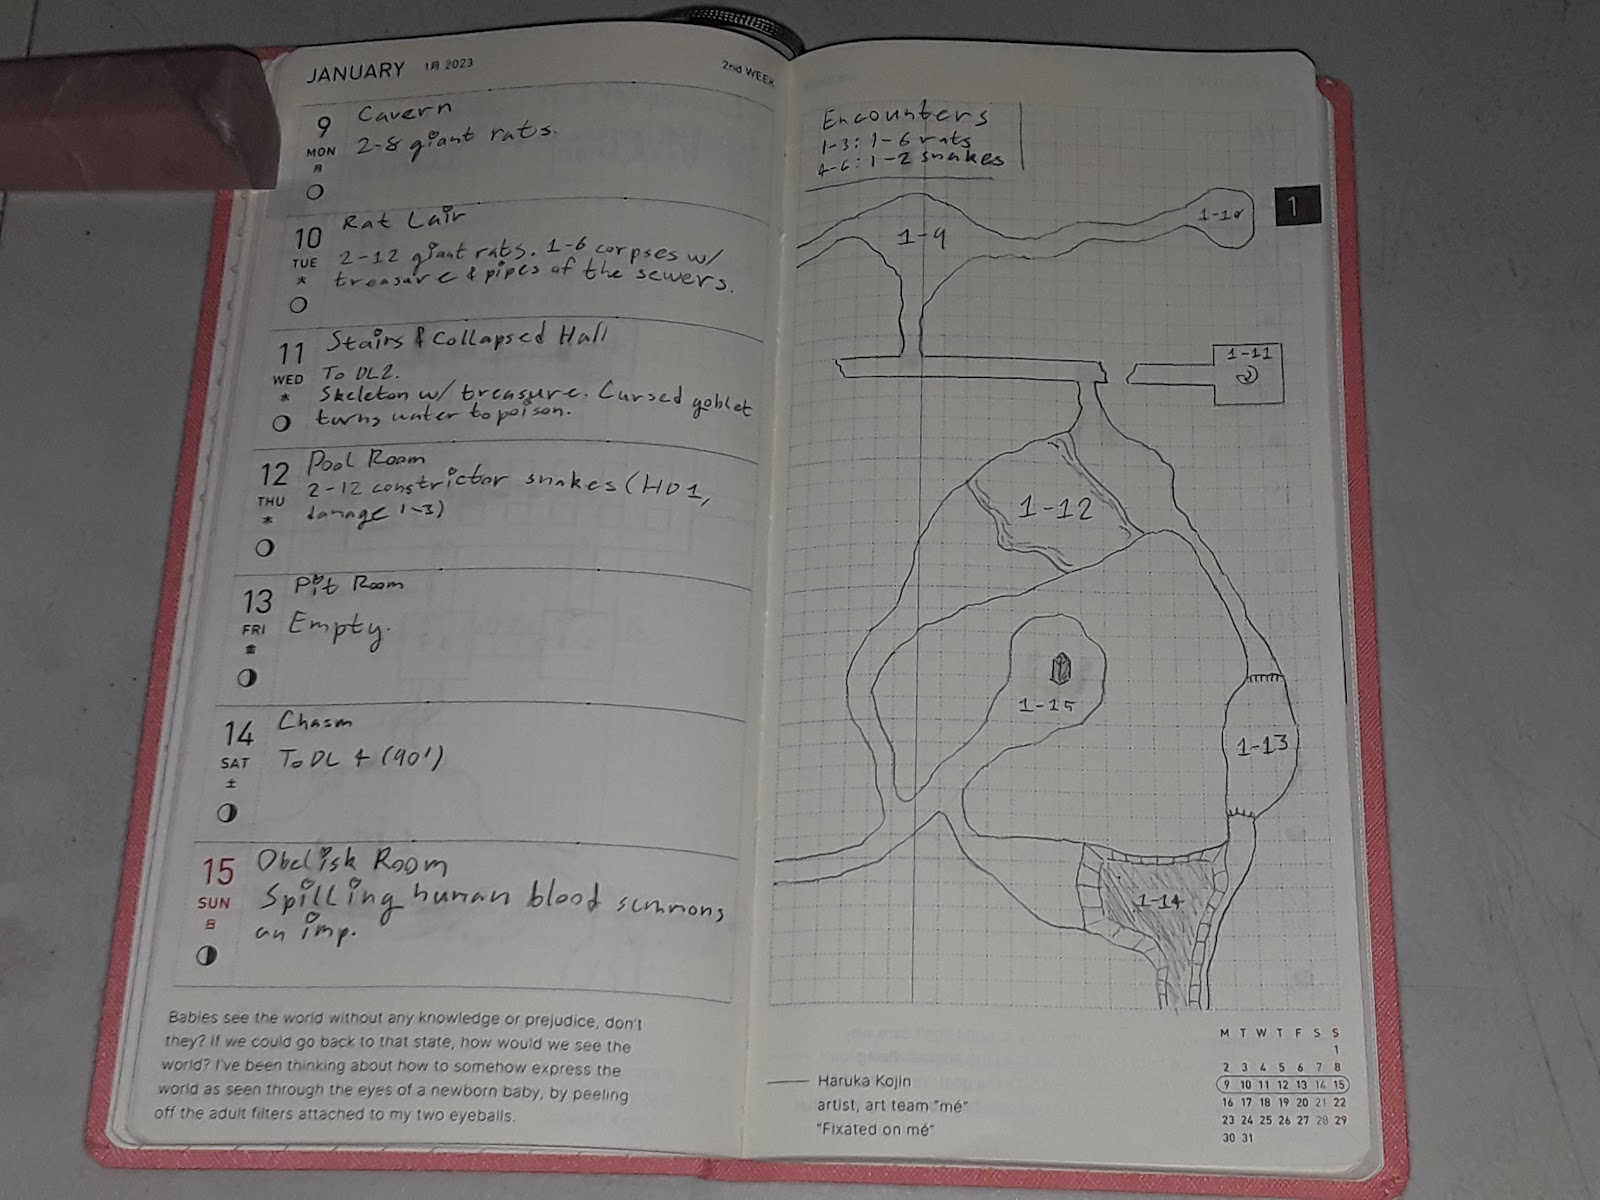 JANUARY 1月 2023
2nd WEEK
9 MON 月
Cavern
2-8 giant rats.
10 TUE 火
Rat Lair
2-12 giant rats. 1-6 corpses w/
treasure & pipes of the sewers.
11 WED 水
Stairs & Collapsed Hall
To DL2.
Skeleton w/ treasure. Cursed goblet
turns water to poison.
12 THU 木
Pool Room
2-12 constrictor snakes (HD1,
damage 1-3)
13 FRI 金
Pit Room
Empty.
14 SAT 土
Chasm
To DL 4 (90')
15 SUN 日
Obelisk Room
Spilling human blood summons
an imp.
Babies see the world without any knowledge or prejudice, don't
they? If we could go back to that state, how would we see the
world? I've been thinking about how to somehow express the
world as seen through the eyes of a newborn baby, by peeling
off the adult filters attached to my two eyeballs.
Encounters
1-3: 1-6 rats
4-6: 1-2 snakes
1
1-10
1-9
1-11
1-12
1-15
1-13
1-14
Haruka Kojin
artist, art team "mé"
"Fixated on mé"
M T W T F S S
1
2 3 4 5 6 7 8
9 10 11 12 13 14 15
16 17 18 19 20 21 22
23 24 25 26 27 28 29
30 31